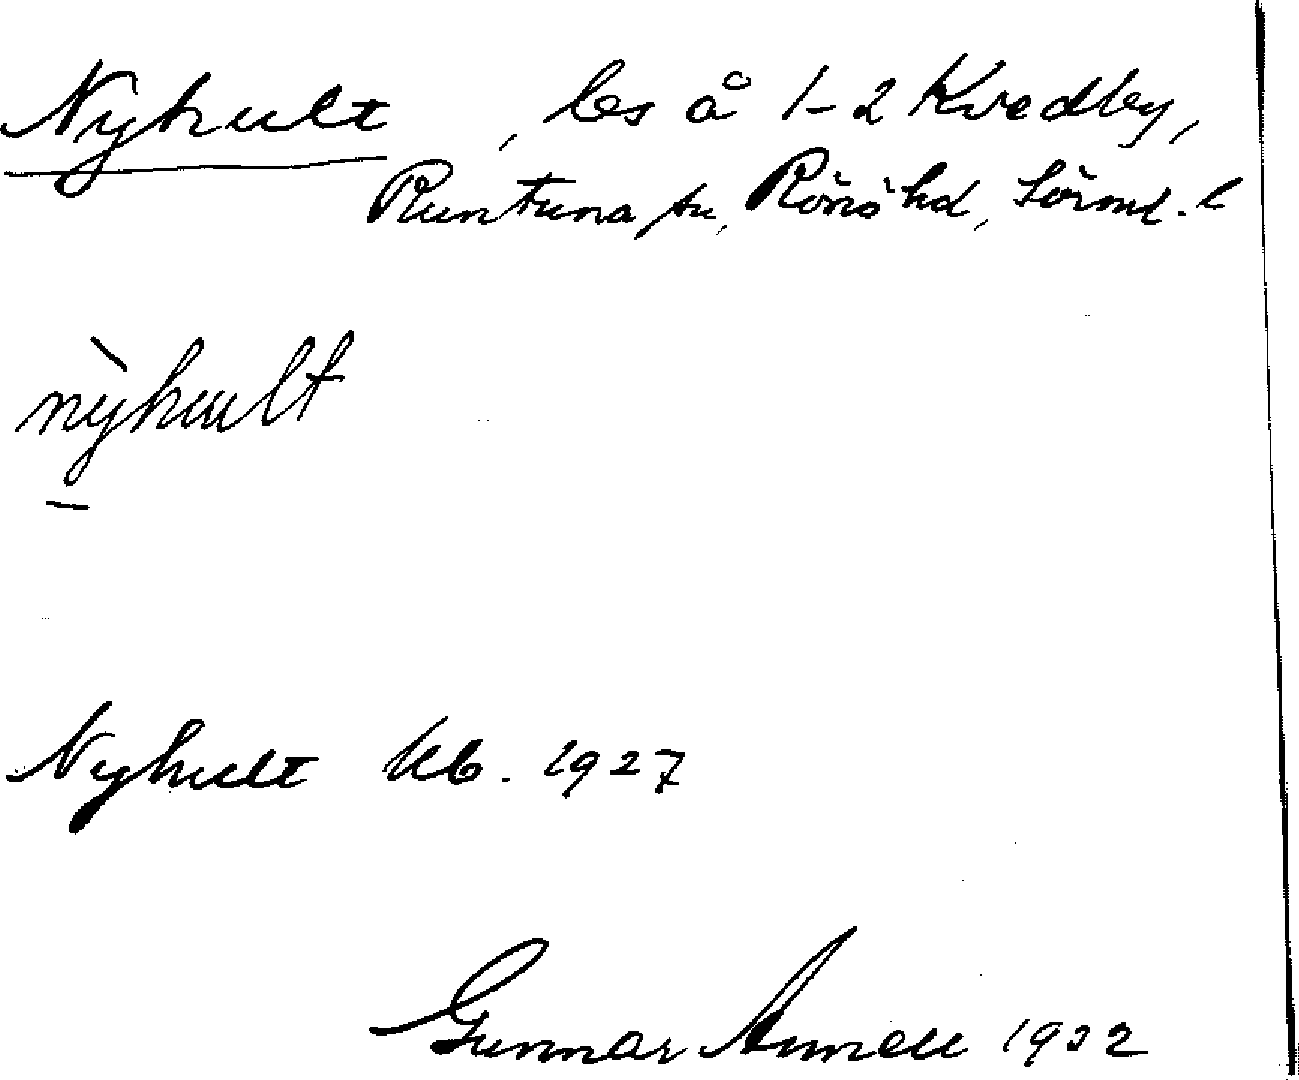 Nyhult, les å 1-2 Kvedby,
Runtuna sn, Rönö hd, Sörml. l
nỳhult
Nyhult kb. 1927
Gunnar Annell 1932